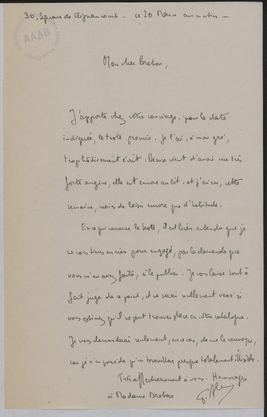 30, Square de Clignancourt - ce 20 Mars au matin -
AAAB
Mon cher Breton,
J'apporte chez votre concierge, pour la date
indiquée, le texte promis. Je l'ai, à mon gré,
trop hâtivement écrit. Denise vient d'avoir une très
forte angine, elle est encore au lit. et j'ai eu, cette
semaine, moins de loisir encore que d'habitude.
En ce qui concerne le texte, il est bien entendu que je
ne vous tiens en rien pour engagé, par la demande que
vous m'en avez faite, à le publier. Je vous laisse tout à
fait juge de ce point, et ne serai nullement vexé si
vous estimez qu'il ne peut trouver place en votre catalogue.
Je vous demanderai seulement, en ce cas, de me le renvoyer,
car je n'en possède qu'un brouillon presque totalement illisible.
Très affectueusement à vous. Hommages
à Madame Breton